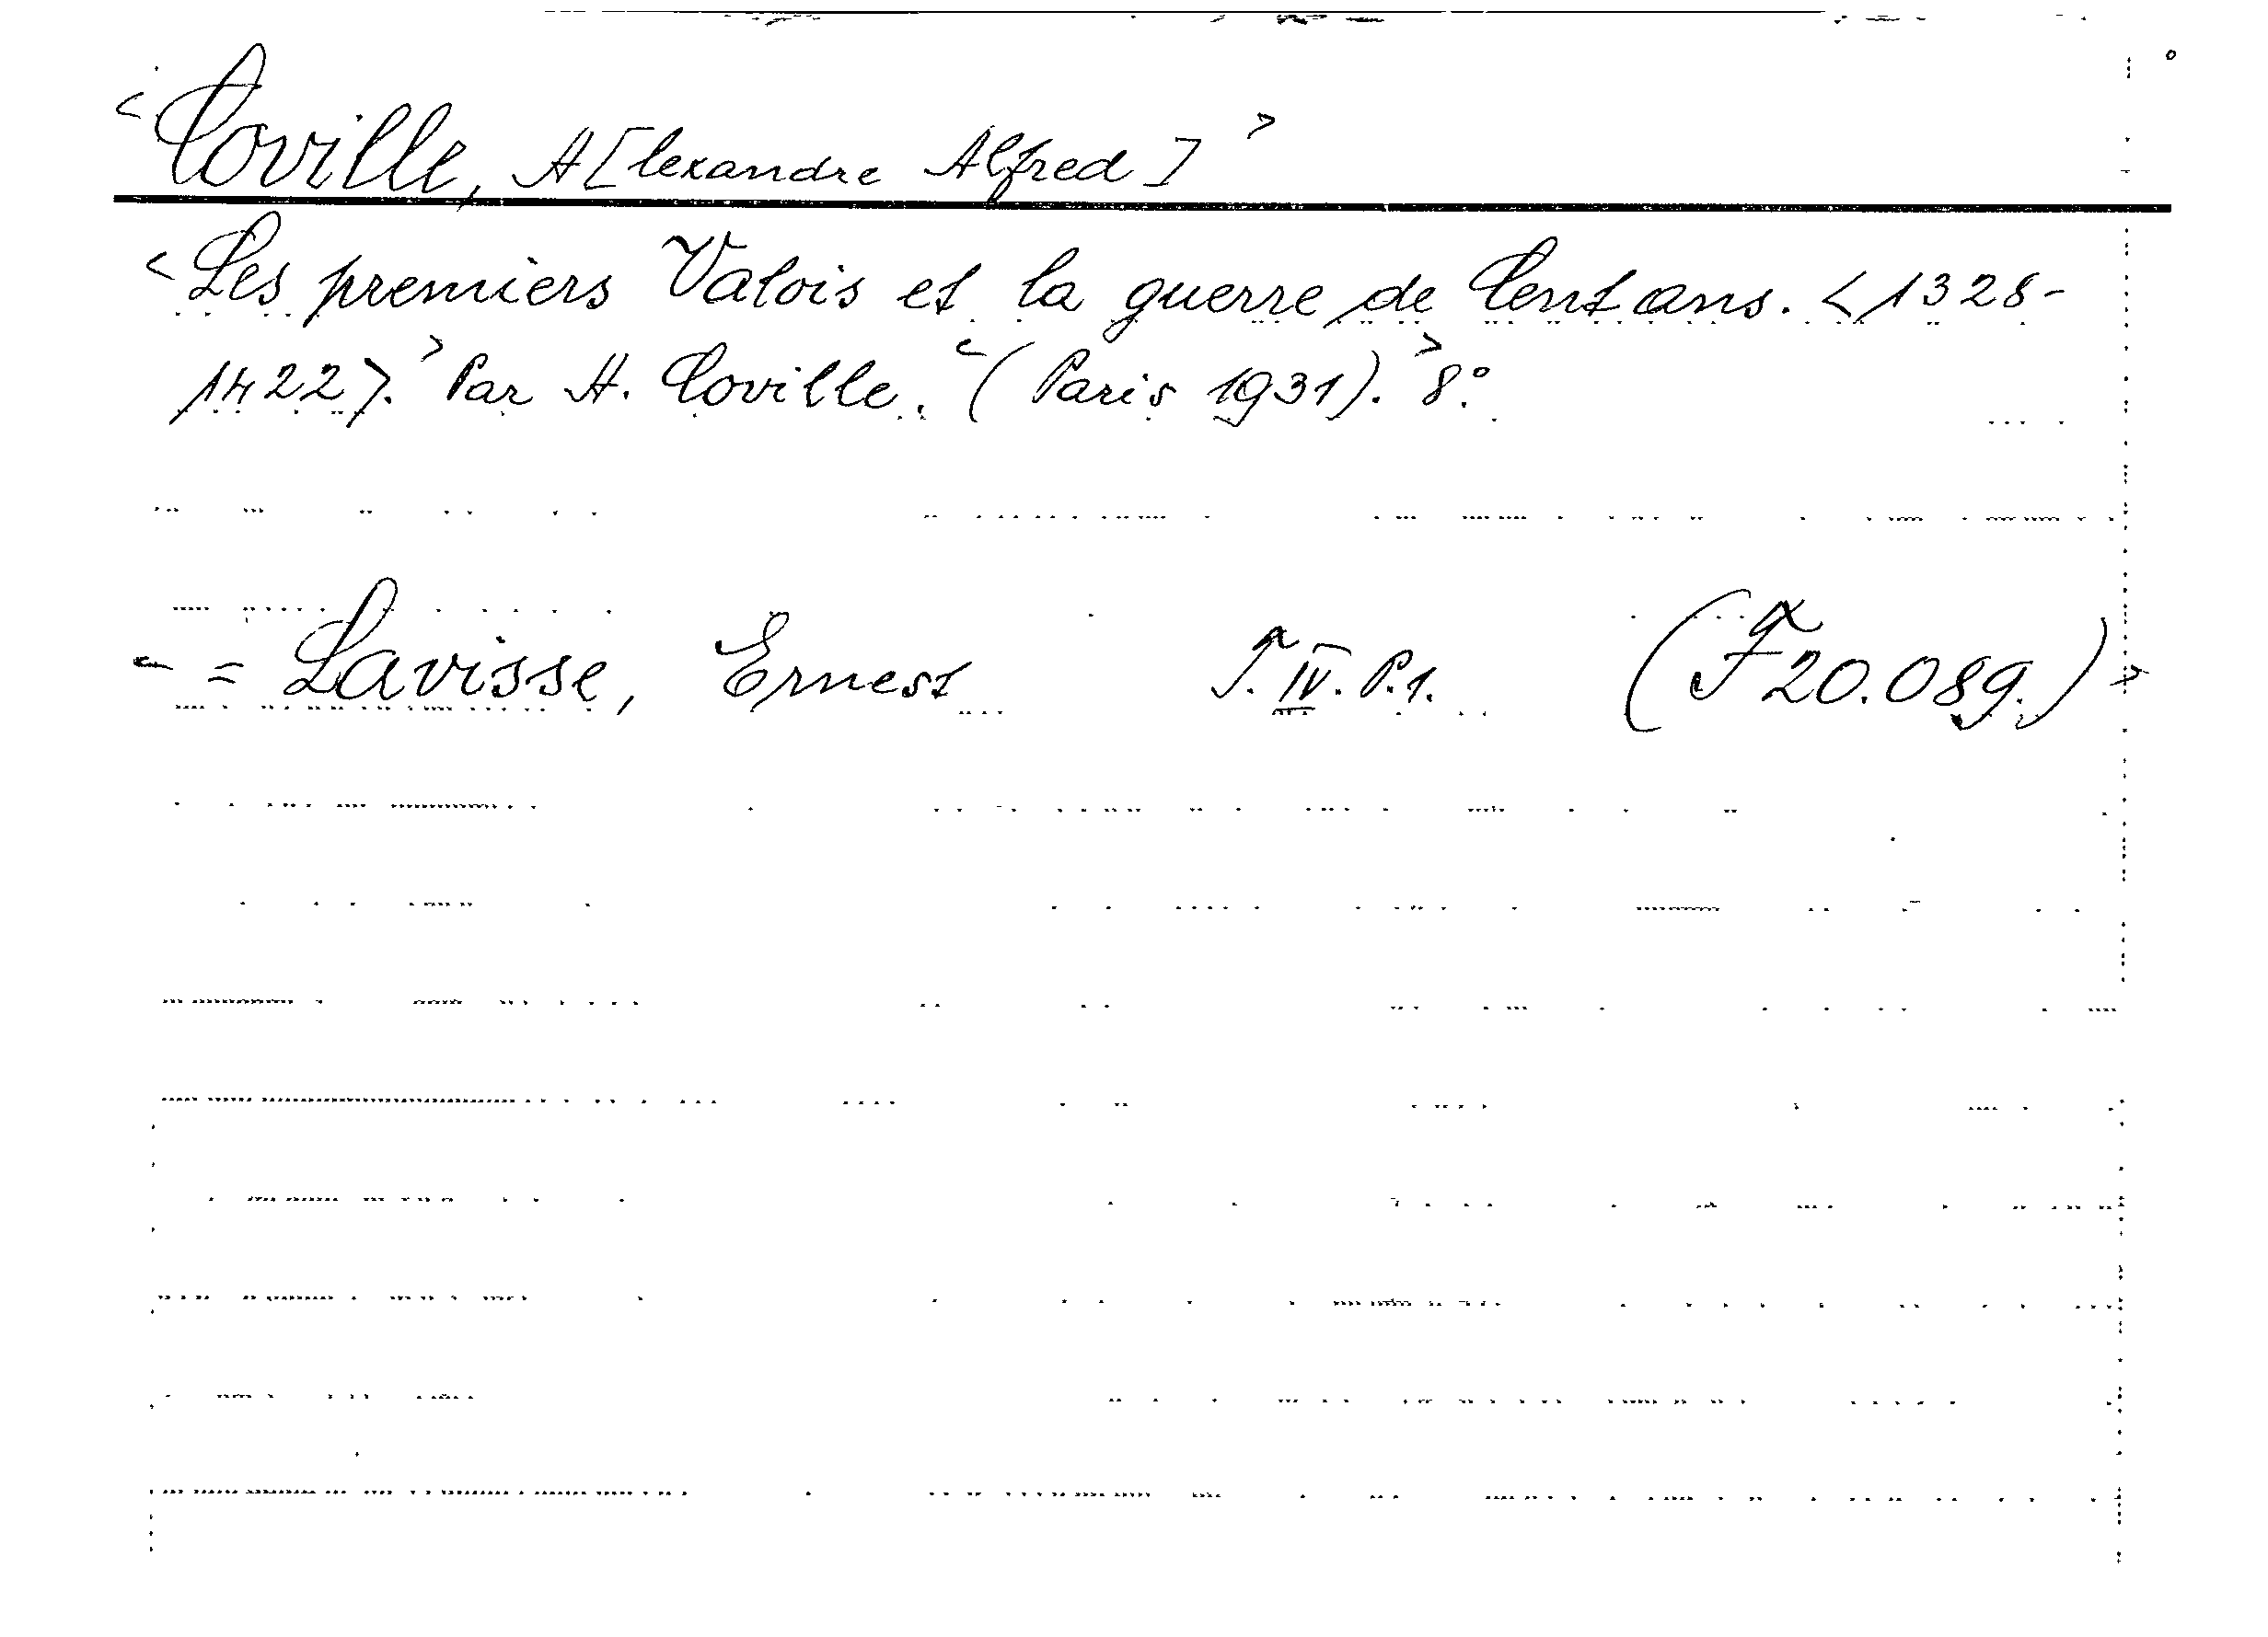 <Coville, A[lexandre Alfred]>
<Les premiers Valois et la guerre de Cent ans. <1328-
1422>.> Par A. Coville. <(Paris 1931).> 8°.
<= Lavisse, Ernest T. IV. P.1. (F 20.089.)>